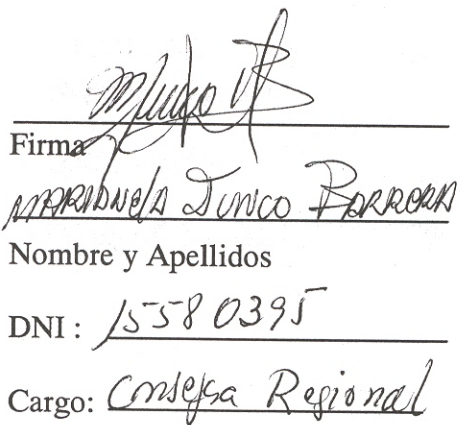 Firma
MARIANELA JUNCO BARRERA
Nombre y Apellidos
DNI : 15580395
Cargo: Consejera Regional